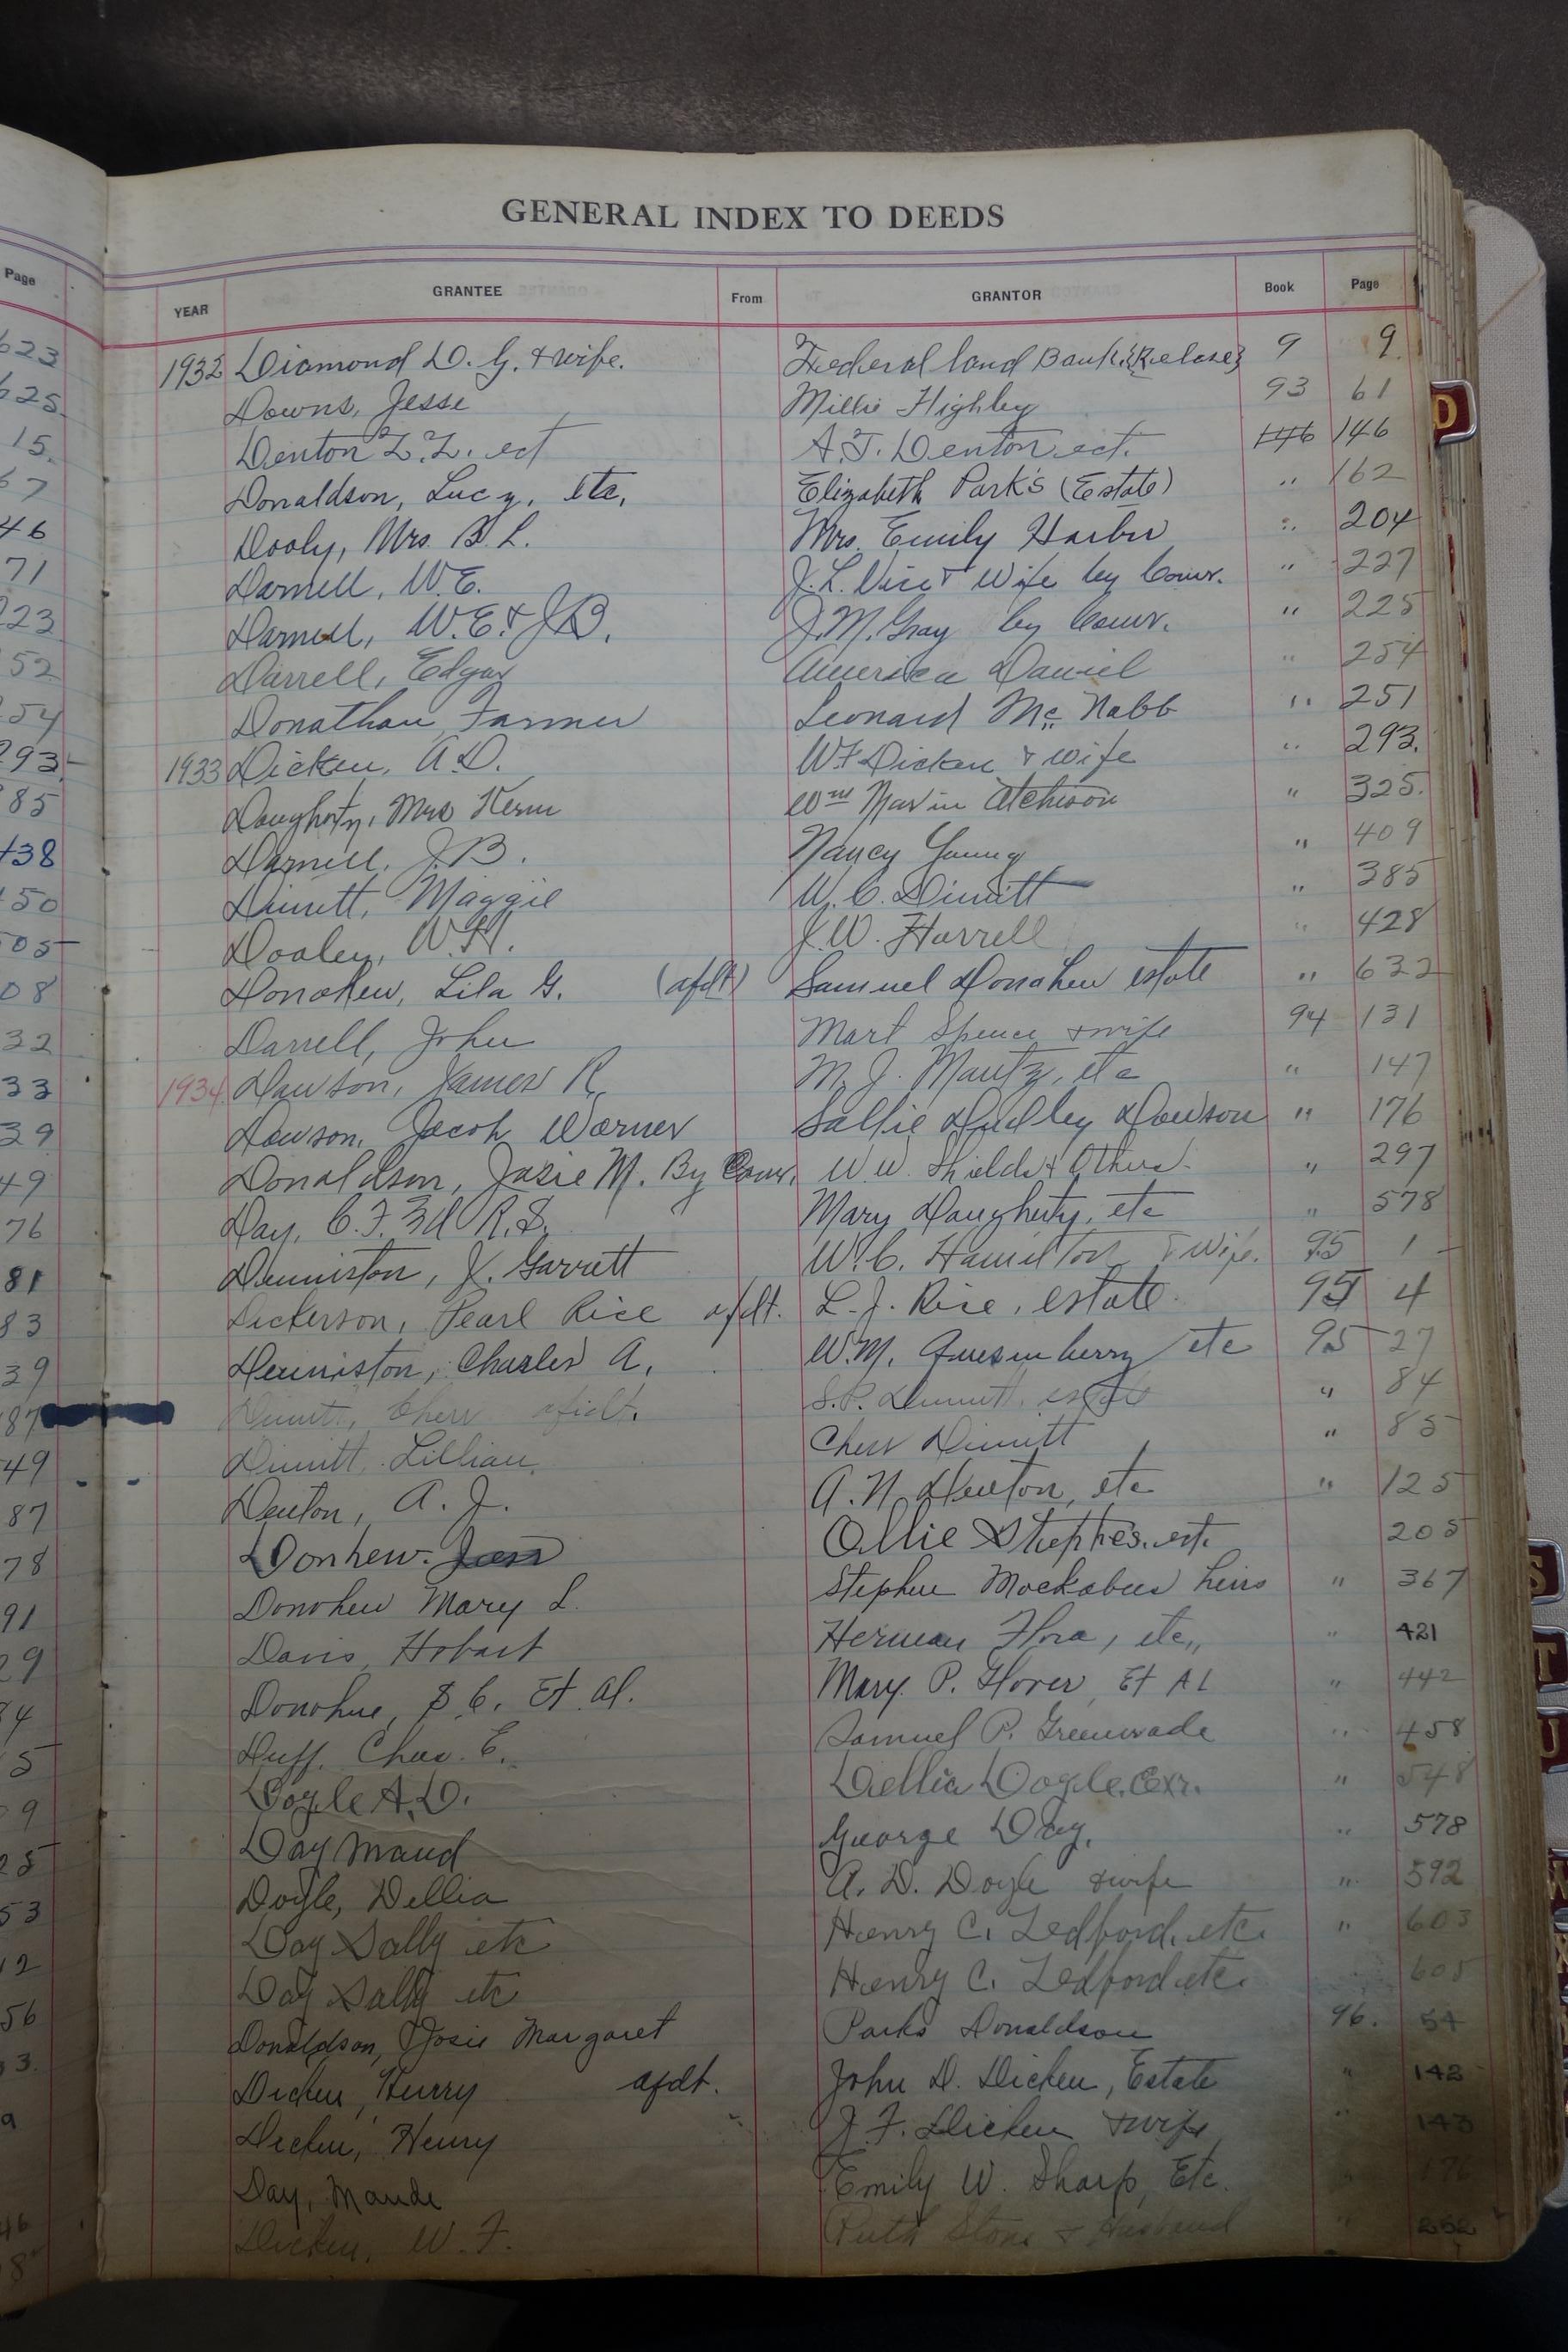 GENERAL INDEX TO DEEDS
Page YEAR GRANTEE From GRANTOR Book Page
623 1932 Diamond D. G. & wife. Federal land Bank. {Release} 9 9.
625. Downs, Jesse Millie Highley 93 61
15. Denton Z. Z. ect A. T. Denton ect. 146 146
67 Donaldson, Lucy, etc. Elizabeth Park's (Estate) " 162
46 Dooly, Mrs. B. L. Mrs. Emily Harber " 204
71 Darnell, W. E. J. L. Vice & Wife by Comr. " 227
23 Darnell, W. E. & J. B. J. M. Gray by Comr. " 225
52 Darrell, Edgar America Daniel " 254
54 Donathan, Farmer Leonard McNabb " 251
293 1933 Dicken, A. D. W F Dicken & wife " 293.
85 Daugherty, Mrs Kern Wm Marvin Atchison " 325.
438 Darnell, J. B. Nancy Young " 409
50 Dimitt, Maggie W. C. Dimitt " 385
505 Dooley, W. H. J. W. Harrell " 428
08 Donohew, Lila G. (afdt) Samuel Donohew estate " 632
32 Darrell, John Mart Spence & wife 94 131
33 1934 Dawson, James R. M. J. Mantz, etc " 147
39 Dawson, Jacob Warner Sallie Dudley Dawson " 176
49 Donaldson, Josie M. By Comr. W. W. Shields & Others. " 297
76 Day, C. F. 3d R. S. Mary Daugherty, etc " 578
81 Denniston, J. Garrett W. C. Hamilton & Wife. 95 1
83 Dickerson, Pearl Rice afdt. L. J. Rice, estate 95 4
39 Denniston, Charles A. W. M. Quesenberry etc 95 27
87 Dimitt, Cher afidt. S. P. Dimitt, estate " 84
49 Dimitt, Lillian Cher Dimitt " 85
87 Denton, A. J. A. N. Denton, etc " 125
78 Donhew. Ollie Stephes. est. 205
91 Donohew Mary L. Stephen Mockabee heirs " 367
29 Davis, Hobart Herman Flora, etc., " 421
4 Donohue, S. C. Et Al. Mary P. Glover Et Al " 442
5 Duff. Chas. E. Samuel P. Greenwade " 458
9 Dogle A. D. Dellia Dogle. Exr. " 548
25 Day Maud George Day. " 578
53 Doyle, Dellia A. D. Doyle & wife " 592
12 Day Sally etc Henry C. Ledford, etc. " 603
56 Day Sally etc Henry C. Ledford etc. 605
3. Donaldson, Josie Margaret Parks Donaldson 96. 54
9 Dicken, Henry afdt. John D. Dicken, Estate " 142
Dicken, Henry J. F. Dicken & wife " 143
Day, Maude Emily W. Sharp, Etc. 176
46 Dicken, W. F. Ruth Stone & Husband " 252
8
D
S
T
U